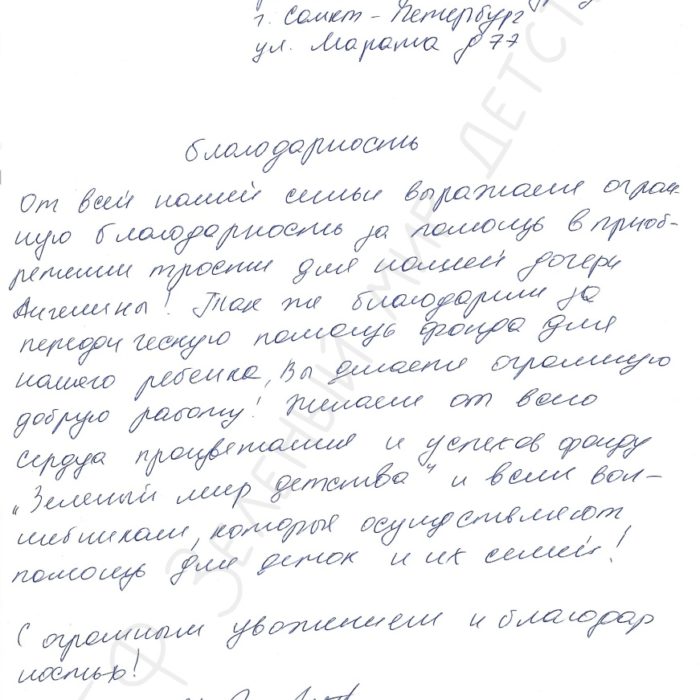 г. Санкт-Петербург
ул. Марата д 77
благодарность
От всей нашей семьи выражаем огром-
ную благодарность за помощь в приоб-
ретении трости для нашей дочери
Ангелины! Так же благодарим за
передическую помощь фонда для
нашего ребенка, Вы делаете огромную
добрую работу! Желаем от всего
сердца процветания и успехов фонду
"Зеленый мир детства" и всем вол-
шебникам, которые осуществляют
помощь для деток и их семей!
С огромным уважением и благодар
ностью!
ЗЕЛЕНЫЙ МИР ДЕТСТ